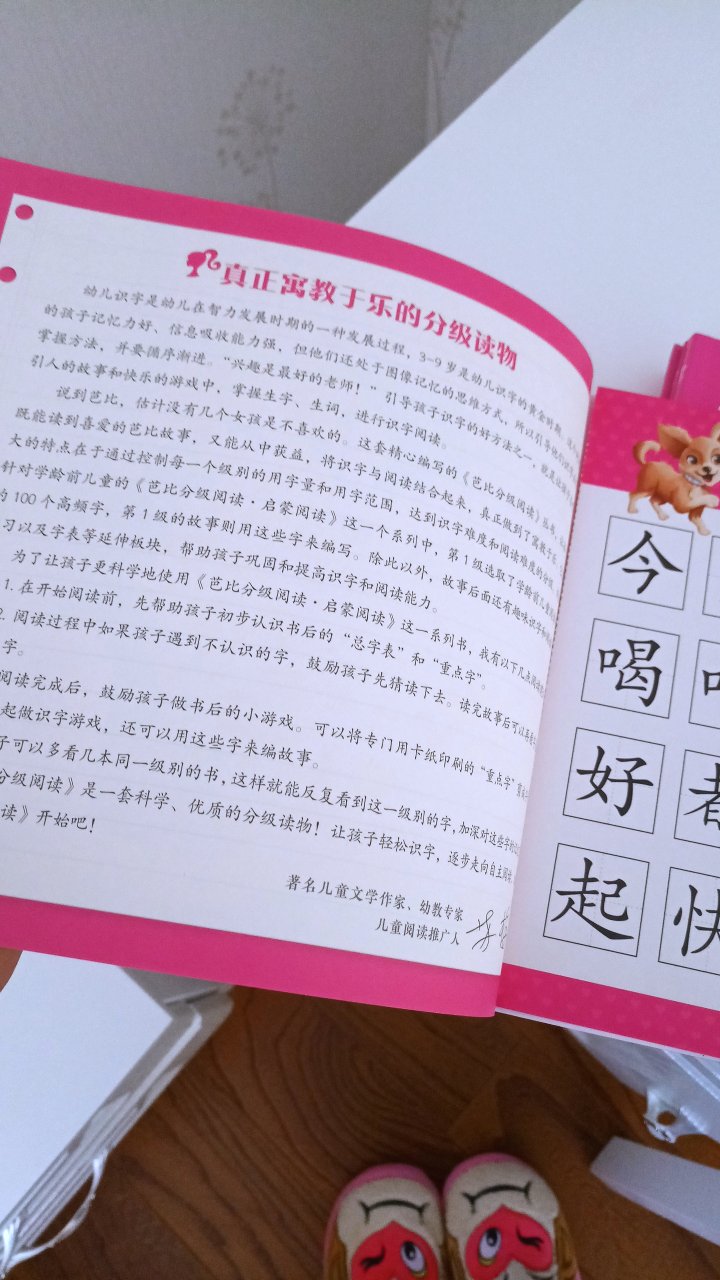 真正寓教于乐的分级读物
幼儿识字是幼儿在智力发展时期的一种发展过程，3~9岁是幼儿识字的黄金时期。
的孩子记忆力好、信息吸收能力强，但他们还处于图像记忆的思维方式，所以引导他们
掌握方法，并要循序渐进。“兴趣是最好的老师！”引导孩子识字的好方法之一，就是
引人的故事和快乐的游戏中，掌握生字、生词，进行识字阅读。
说到芭比，估计没有几个女孩是不喜欢的。这套精心编写的《芭比分级阅读》丛书，
既能读到喜爱的芭比故事，又能从中获益，将识字与阅读结合起来，真正做到了寓教于乐。
大的特点在于通过控制每一个级别的用字量和用字范围，达到识字难度和阅读难度的
针对学龄前儿童的《芭比分级阅读·启蒙阅读》这一个系列中，第1级选取了学龄前儿童
的100个高频字，第1级的故事则用这些字来编写。除此以外，故事后面还有趣味识字和
习以及字表等延伸板块，帮助孩子巩固和提高识字和阅读能力。
为了让孩子更科学地使用《芭比分级阅读·启蒙阅读》这一系列书，我有以下几点
1. 在开始阅读前，先帮助孩子初步认识书后的“总字表”和“重点字”。
2. 阅读过程中如果孩子遇到不认识的字，鼓励孩子先猜读下去。读完故事后可以再
字。
阅读完成后，鼓励孩子做书后的小游戏。可以将专门用卡纸印刷的“重点字”
起做识字游戏，还可以用这些字来编故事。
子可以多看几本同一级别的书，这样就能反复看到这一级别的字，加深对这些字的
分级阅读》是一套科学、优质的分级读物！让孩子轻松识字，逐步走向自主阅读，
读》开始吧！
著名儿童文学作家、幼教专家
儿童阅读推广人
今
喝
好 都
起 快